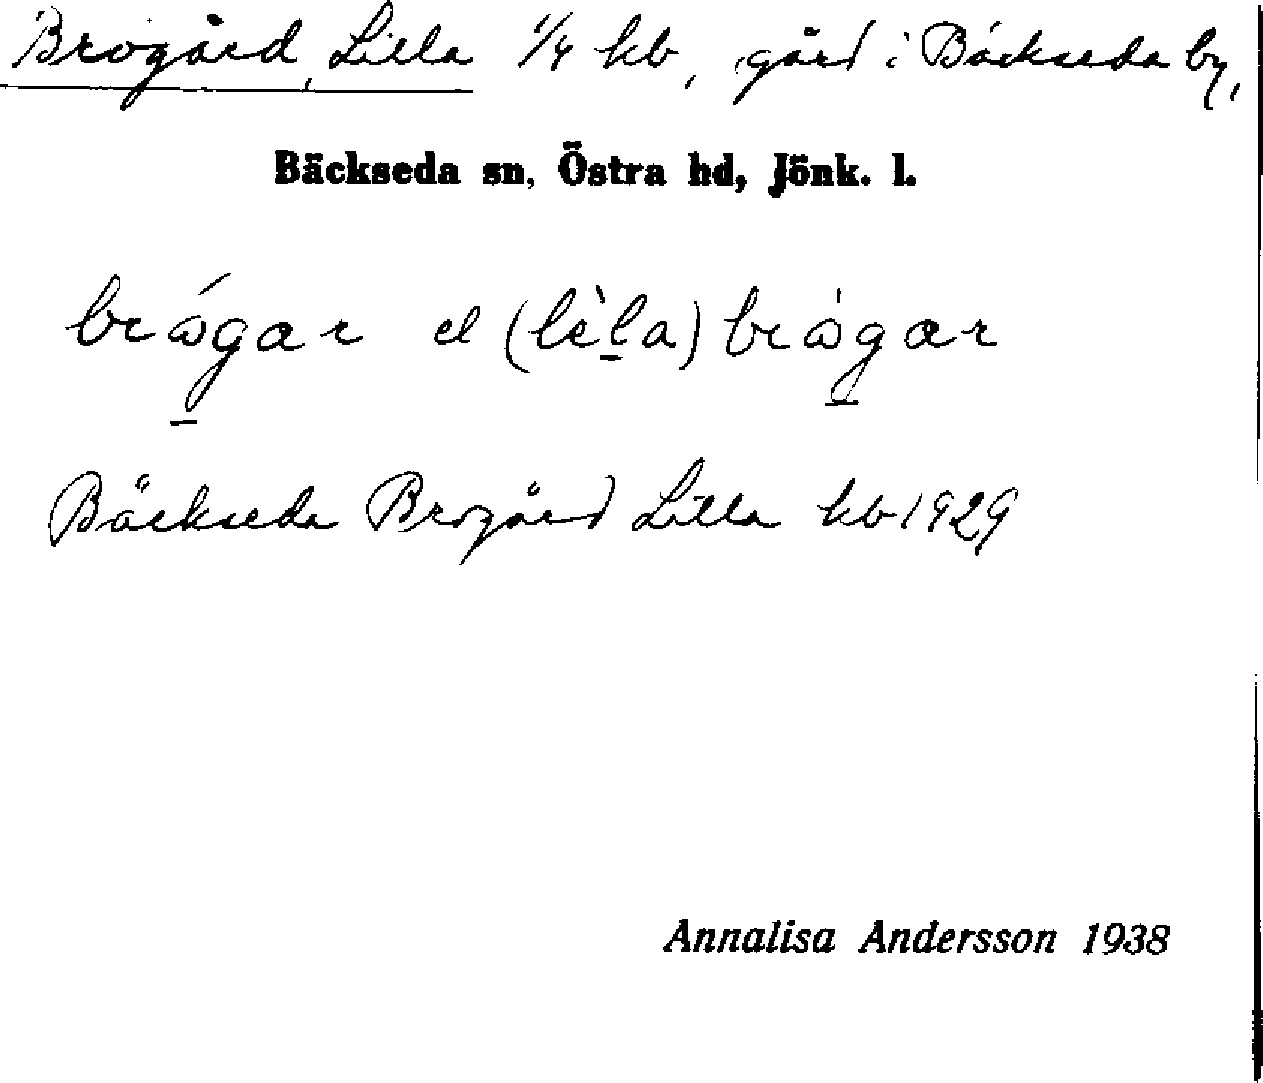 Brogård, Lilla 1/4 kb, gård i Bäckseda by,
Bäckseda sn, Östra hd, Jönk. l.
brógar el (lèla) brógar
Bäckseda Brogård Lilla kb 1929
Annalisa Andersson 1938